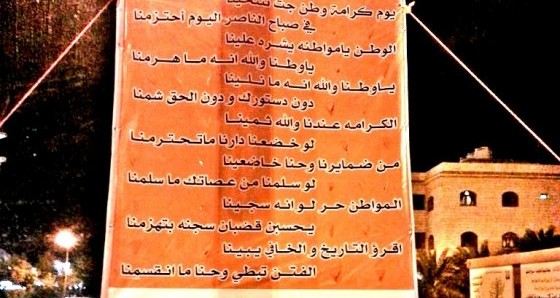 يوم كرامة وطن جت
في صباح الناصر اليوم أحتزمنا
الوطن يامواطنه بشره علينا
ياوطنا والله انه ما هرمنا
ياوطنا والله انه ما نلينا
دون دستورك و دون الحق شمنا
الكرامه عندنا والله ثمينا
لو خضعنا دارنا ماتحترمنا
من ضمايرنا وحنا خاضعينا
لو سلمنا من عصاتك ما سلمنا
المواطن حر لو انه سجينا
يحسبن قضبان سجنه بتهزمنا
اقرؤ التاريخ و الخافي يبينا
الفتن تبطي وحنا ما انقسمنا